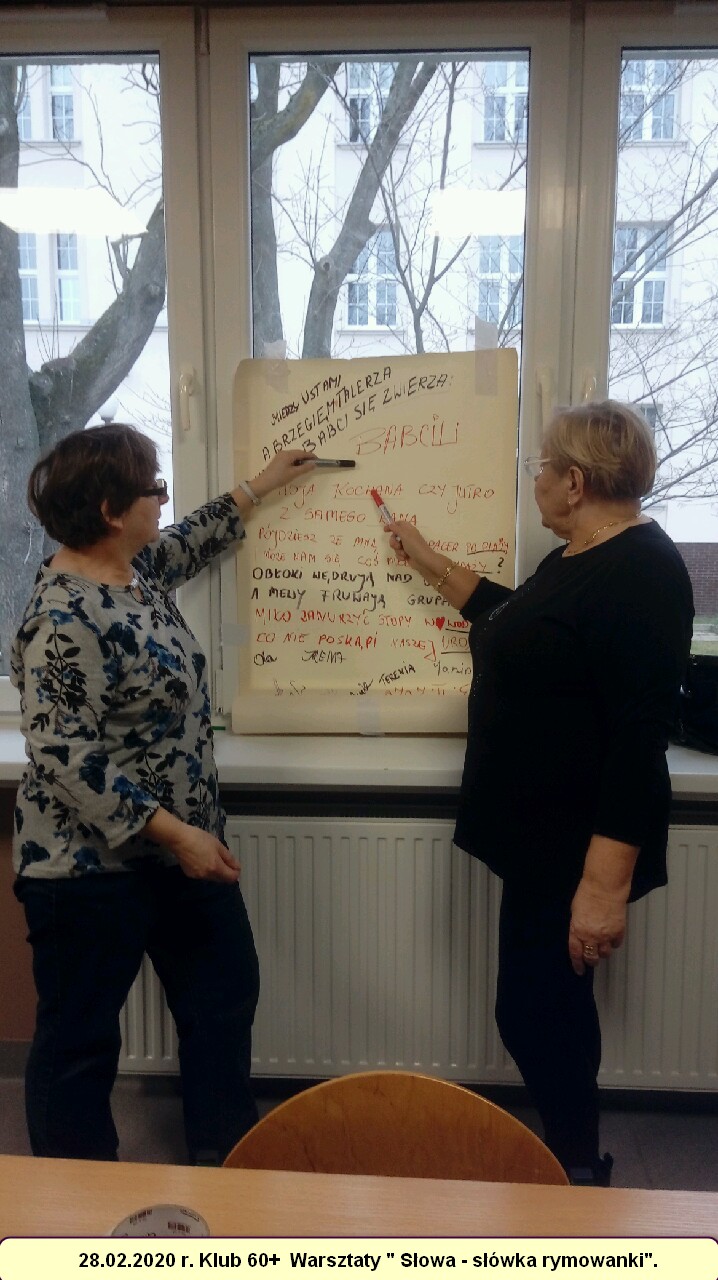 MIĘDZY USTAMI
A BRZEGIEM TALERZA
BABCI SIĘ ZWIERZA:
BABCIU
MOJA KOCHANA CZY JUTRO
Z SAMEGO RANA
PÓJDZIESZ ZE MNĄ SPACER PO PLAŻY
I MOŻE NAM SIĘ COŚ ?
OBŁOKI WĘDRUJĄ NAD
A MEWY FRUWAJĄ GRUPĄ
MIŁO ZANURZYĆ STOPY W
CO NIE POSKĄPI NASZEJ URO
dla IRENA
TERENIA
28.02.2020 r. Klub 60+ Warsztaty " Słowa - słówka rymowanki".